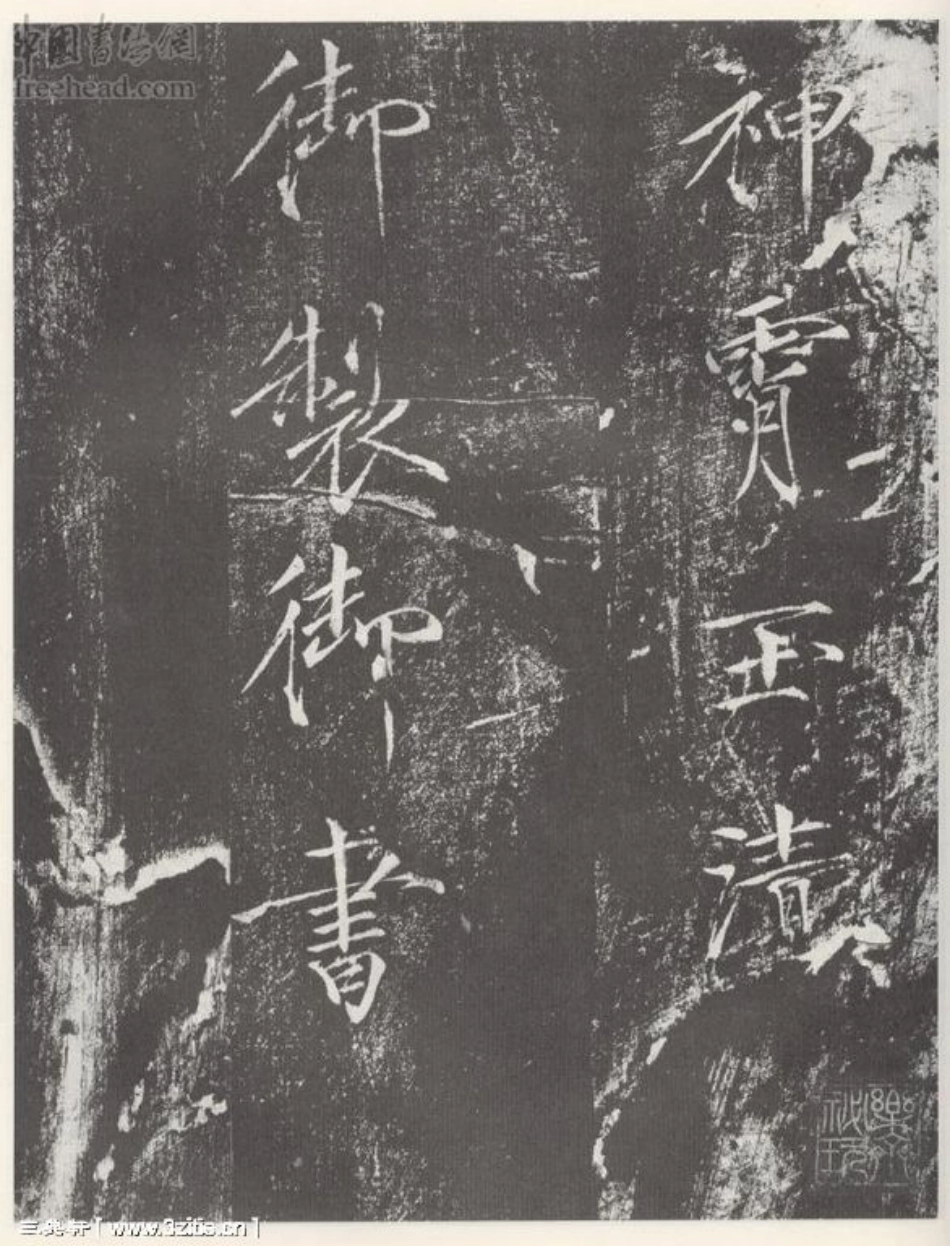 神霄玉清
御製御書
中國書法網
freehead.com
三典轩 [ www.3zitie.cn ]